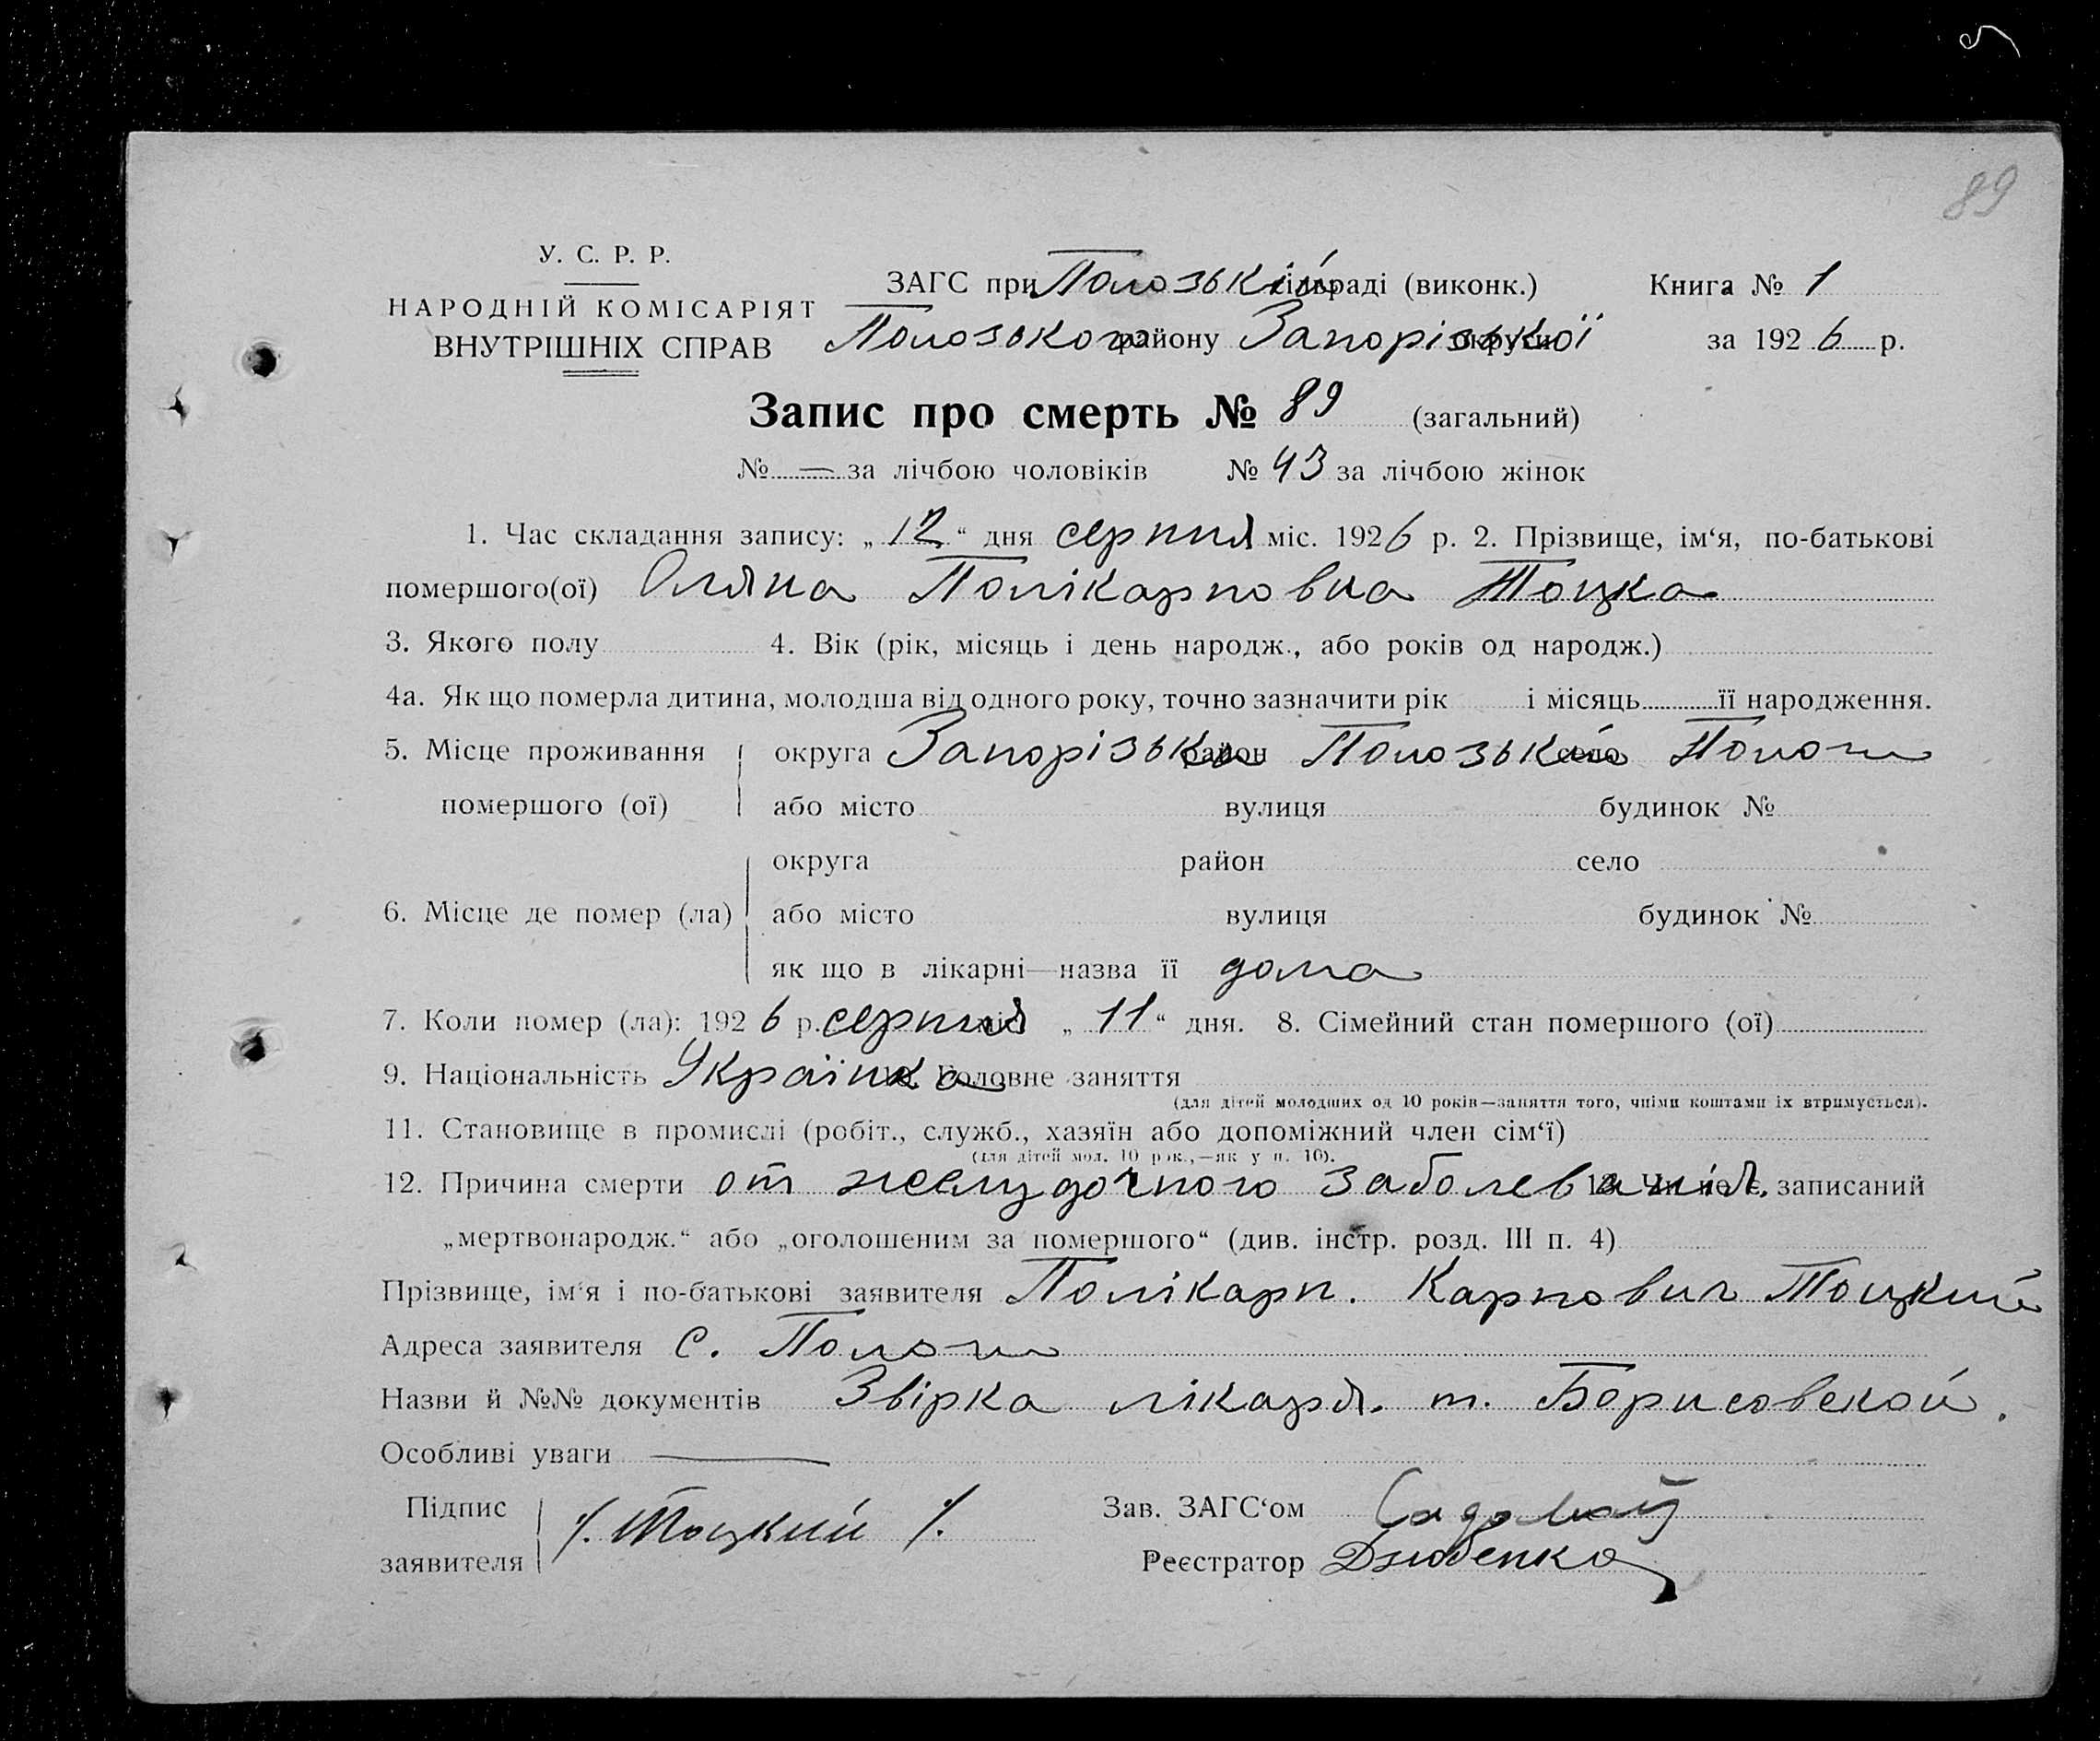 89
У. С. Р. Р.
НАРОДНІЙ КОМІСАРІЯТ
ВНУТРІШНІХ СПРАВ
ЗАГС при Полозькій сільраді (виконк.)
Книга № 1
Полозького району Запорізької округи
за 1926 р.
Запис про смерть № 89 (загальний)
№ — за лічбою чоловіків № 43 за лічбою жінок
1. Час складання запису: „12“ дня серпня міс. 1926 р. 2. Прізвище, ім‘я, по-батькові
помершого(ої) Оляна Полікарповна Тоцка
3. Якого полу 4. Вік (рік, місяць і день народж., або років од народж.)
4а. Як що померла дитина, молодша від одного року, точно зазначити рік і місяць її народження.
5. Місце проживання округа Запорізька район Полозький село Пологи
помершого (ої) або місто вулиця будинок №
округа район село
6. Місце де помер (ла) або місто вулиця будинок №
як що в лікарні—назва її дома
7. Коли помер (ла): 1926 р. серпня міс. „11“ дня. 8. Сімейний стан помершого (ої)
9. Національність Українка 10. Головне заняття
(для дітей молодших од 10 років—заняття того, чиїми коштами їх втримується).
11. Становище в промислі (робіт., служб., хазяїн або допоміжний член сім‘ї)
(для дітей мол. 10 рок.,—як у п. 10).
12. Причина смерти от желудочного заболеванія. 13. Чи не є записаний
„мертвонародж.“ або „оголошеним за помершого“ (див. інстр. розд. III п. 4)
Прізвище, ім‘я і по-батькові заявителя Полікарп. Карпович Тоцкий
Адреса заявителя с. Пологи
Назви й №№ документів Звірка лікаря. т. Борисовской.
Особливі уваги —
Підпис
заявителя /. Тоцкий /.
Зав. ЗАГС‘ом
Реєстратор Дзюбенко